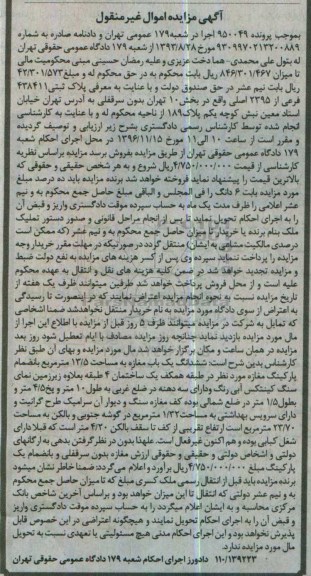 آگهی مزایده اموال غیر منقول
بموجب پرونده ۹۵۰۰۴۹ اجرا در شعبه ۱۷۹ عمومی تهران و دادنامه صادره به شماره
۹۳۰۹۹۷۰۲۱۳۲۰۰۸۸۹ مورخ ۱۳۹۳/۸/۲۸ از شعبه ۱۷۹ دادگاه عمومی حقوقی تهران
له بتول علی محمدی- هما دخت عزیزی و علیه رمضان حسینی مبنی محکومیت مالی
تا میزان ۸۴۶/۳۰۱/۴۶۷ ریال بابت محکوم به در حق محکوم له و مبلغ ۴۳/۳۰۱/۵۷۳
ریال بابت نیم عشر در حق صندوق دولت و با عنایت به معرفی پلاک ثبتی ۴۳۸۴۱۱
فرعی از ۲۳۹۵ اصلی واقع در بخش ۱۰ تهران بدون سرقفلی به آدرس تهران خیابان
استاد معین نبش کوچه یکم پلاک ۱۸۹ از ناحیه محکوم له و با عنایت به کارشناسی
انجام شده توسط کارشناس رسمی دادگستری بشرح زیر ارزیابی و توصیف گردیده
و مقرر است از ساعت ۱۰ الی ۱۱ مورخ ۱۳۹۶/۱۱/۱۵ در محل اجرای احکام شعبه
۱۷۹ دادگاه عمومی حقوقی تهران از طریق مزایده بفروش برسد مزایده براساس نظریه
کارشناسی از قیمت ۴/۷۵۰/۰۰۰/۰۰۰ ریال شروع و به هر شخص حقیقی و حقوقی که
بالاترین قیمت را پیشنهاد نماید فروخته خواهد شد برنده مزایده باید ده درصد مبلغ
مورد مزایده بابت ۶ دانگ را فی المجلس و الباقی مبلغ حاصل جمع محکوم به و نیم
عشر اعلامی را ظرف مدت یک ماه به حساب سپرده موقت دادگستری واریز و قبض آن
را به اجرای احکام تحویل نماید تا پس از انجام مراحل قانونی و صدور دستور تملیک
ملک بنام برنده یا خریدار تا میزان حاصل جمع محکوم به و نیم عشر (که ممکن است
درصدی مالکیت مشاعی به ایشان) منتقل گردد در صورتیکه در مهلت مقرر خریدار وجه
مزایده را پرداخت ننماید سپرده وی پس از کسر هزینه های مزایده به نفع دولت ضبط
و مزایده تجدید خواهد شد در ضمن کلیه هزینه های نقل و انتقال به عهده محکوم
علیه است و از محل فروش پرداخت خواهد شد طرفین میتوانند ظرف یک هفته از
تاریخ مزایده نسبت به نحوه انجام مزایده اعتراض نمایند که در اینصورت تا رسیدگی
به اعتراض از سوی دادگاه مورد مزایده به نام خریدار منتقل نخواهد شد ضمنا اشخاصی
که تمایل به شرکت در مزایده میتوانند ظرف ۵ روز قبل از مزایده با اطلاع این اجرا از
مال مورد مزایده بازدید نمایند چنانچه روز مزایده مصادف با ایام تعطیل شود روز بعد
مزایده در همان ساعت و مکان برگزار خواهد شد مال مورد مزایده و بهای آن طبق نظر
کارشناس بدین شرح است: ششدانگ یک باب مغازه به مساحت ۱۳/۵ مترمربع بانضمام
پارکینگ مغازه مورد نظر در طبقه همکف یک ساختمان ۴ طبقه بعلاوه زیرزمین نمای
سنگ کینتکس آبی رنگ ودارای سه دهنه در ضلع غربی به طول ۱۰ متر و پخ ۴/۵ متر و
بطول ۱/۵ متر در ضلع شمالی بوده کف مغازه سنگ و دیوار آن سرامیک طرح گرانیت و
دارای سرویس بهداشتی به مساحت ۱/۳۲ مترمربع در گوشه جنوبی و بالکن به مساحت
۲۳/۷۰ مترمربع است ارتفاع تقریبی از کف تا سقف بالکن ۴/۲۰ متر است که قبلا دارای
شغل کبابی بوده و هم اکنون غیرفعال است. علیهذا بدون در نظر گرفتن بدهی به ارگانهای
دولتی و اشخاص دولتی و حقیقی و حقوقی ارزش مغازه بدون سرقفلی و بانضمام یک
پارکینگ مبلغ ۴/۷۵۰/۰۰۰/۰۰۰ ریال برآورد و اعلام می گردد ضمنا خاطر نشان میشود
برنده مزایده باید قبل از انتقال رسمی ملک کسری مبلغ که تا میزان حاصل جمع محکوم
به و نیم عشر دولتی که انتقال تا این میزان خواهد بود و براساس آخرین شاخص بانک
مرکزی محاسبه و به ایشان اعلام میگردد را به حساب سپرده موقت دادگستری واریز
و قبض آن را به اجرای احکام تحویل نمایند و هیچگونه اعتراضی در این خصوص قابل
پذیرش نخواهد بود و این اجرای احکام مدنی هیچ مسئولیتی یا تعهدی نسبت به تحویل
مال مورد مزایده ندارد.
۱۱۰/۱۳۹۲۲۳ دادورز اجرای احکام شعبه ۱۷۹ دادگاه عمومی حقوقی تهران